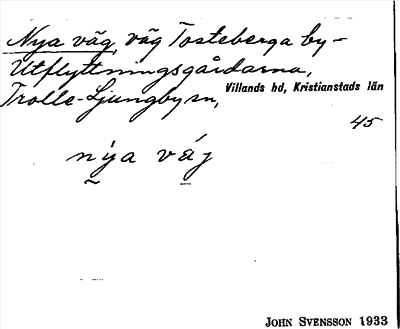 Nya väg, väg Tosteberga by-
Utflyttningsgårdarna,
Trolle-Ljungby sn, Villands hd, Kristianstads län
45
nya väg
JOHN SVENSSON 1933